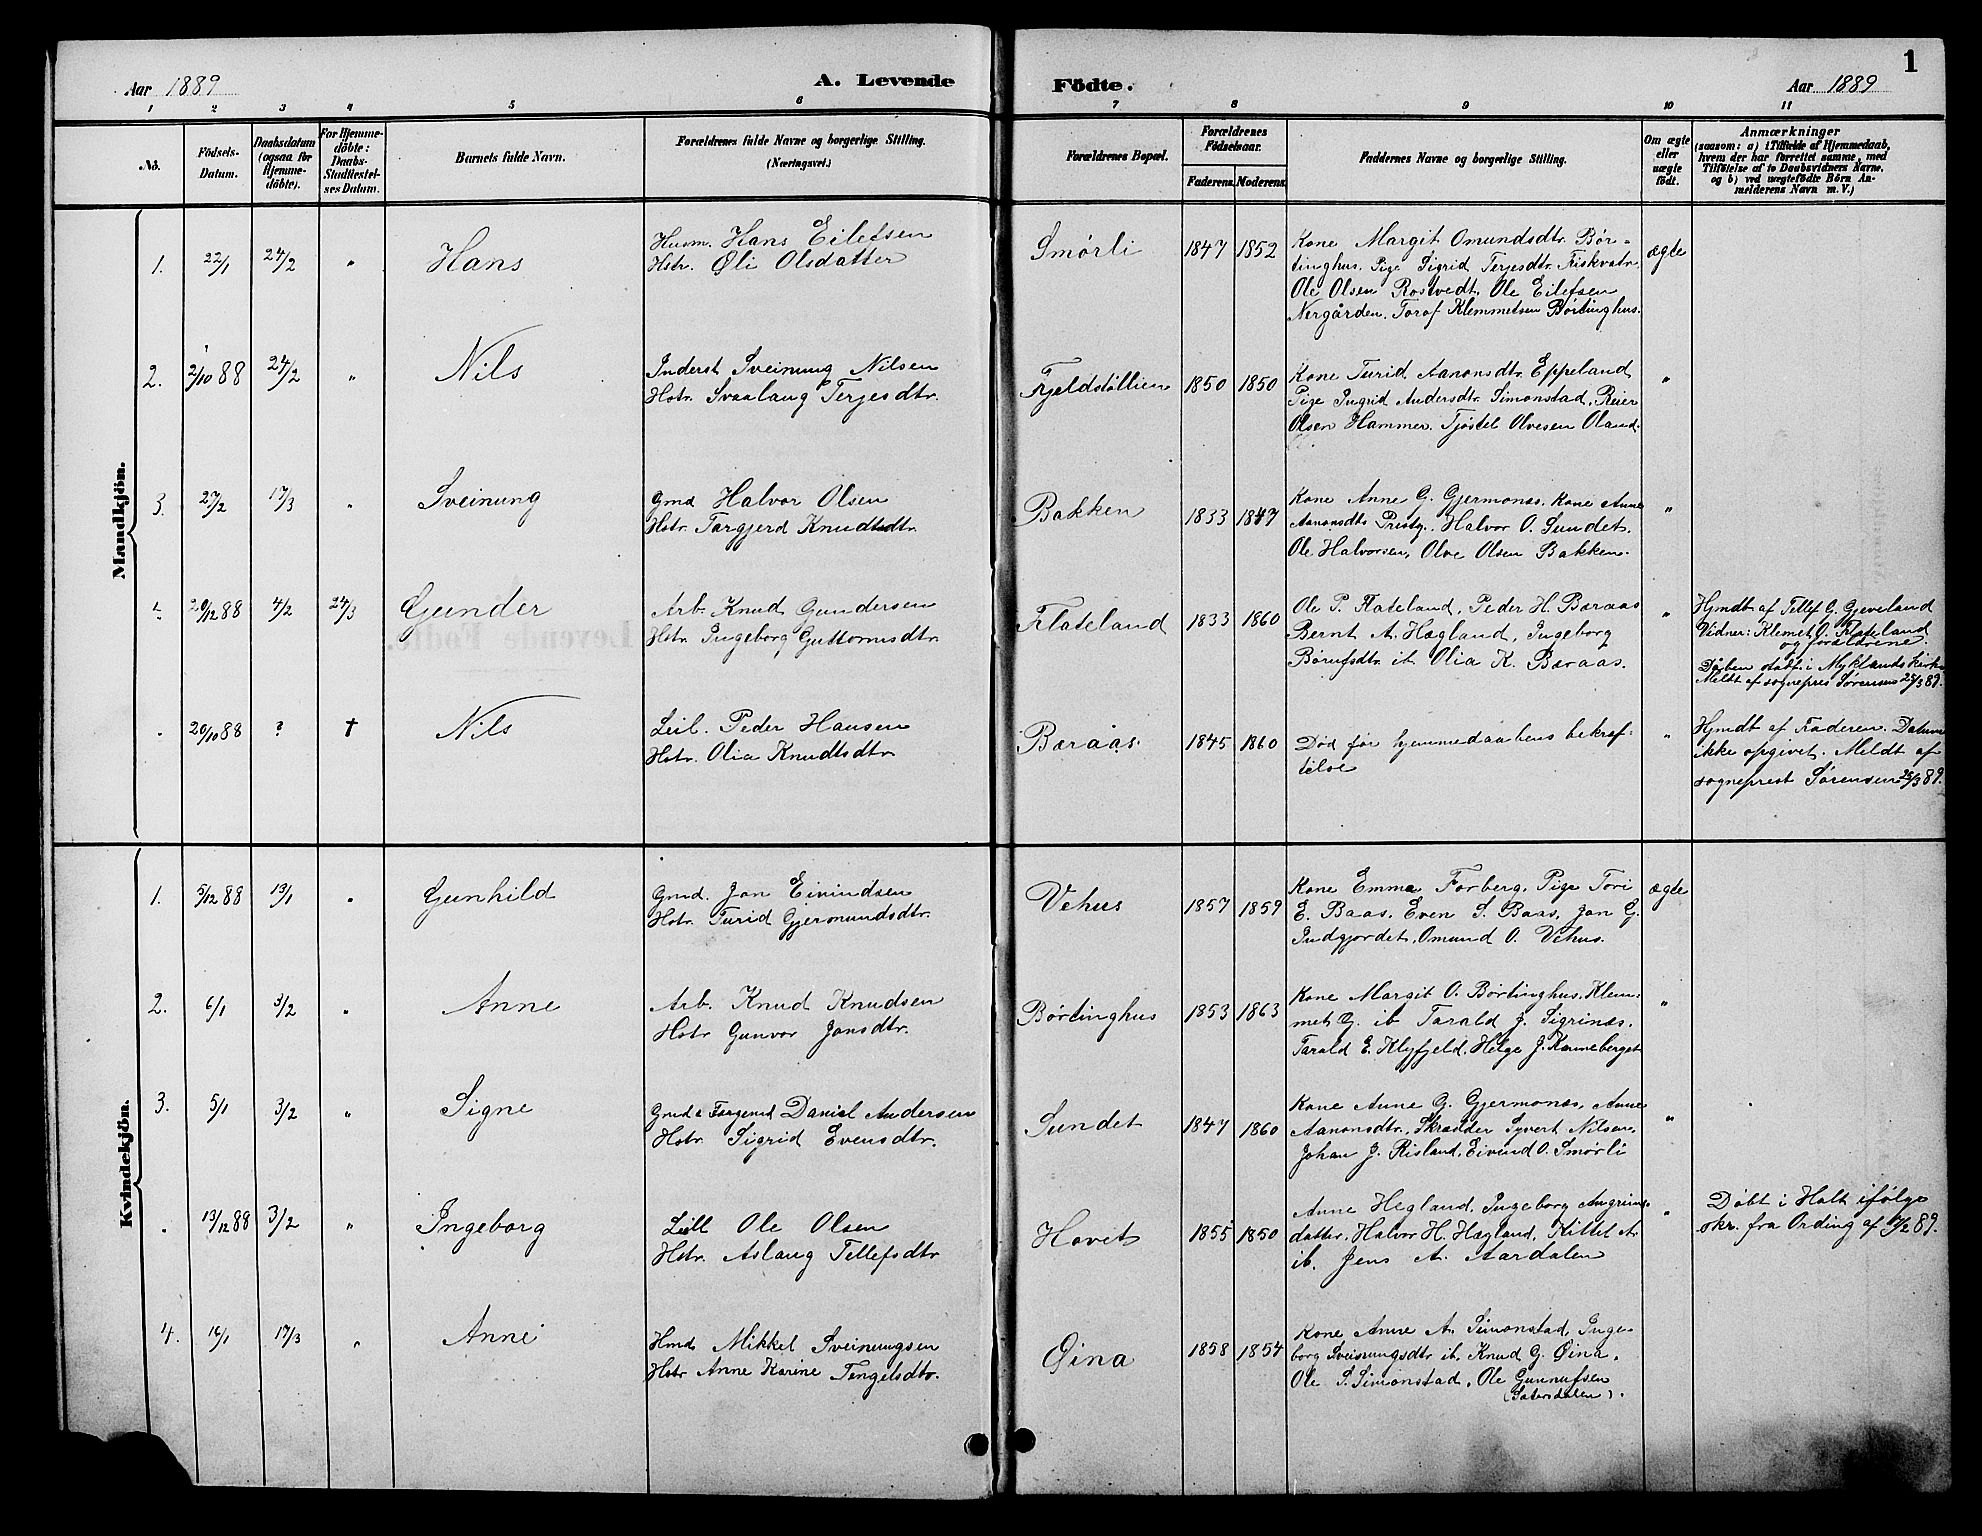 Aar 1889
A. Levende
Födte.
Aar 1889
1
1 2 3 4 5 6
7 8 9 10 11
No.
Födsels-
Datum.
Daabsdatum
(ogsaa for
Hjemme-
döbte).
For Hjemme-
döbte:
Daabs-
Stadfæstel-
ses Datum.
Barnets fulde Navn.
Forældrenes fulde Navne og borgerlige Stilling.
(Næringsvei.)
Forældrenes Bopæl.
Forældrenes
Födselsaar.
Faderens. Moderens.
Faddernes Navne og borgerlige Stilling.
Om ægte
eller
uægte
födt.
Anmærkninger
(saasom: a) i Tilfælde af Hjemmedaab,
hvem der har forrettet samme, med
Tilföielse af to Daabsvidners Navne,
og b) ved uægtefödte Börn An-
melderens Navn m. V.)
Mandkjön.
1. 22/1 24/2 " Hans
Husm. Hans Eilefsen
Hstr. Øli Olsdatter
Smørli 1847 1852
Kone Margit Omundsdtr. Bør-
tinghus. Pige Sigrid Terjesdtr. Fiskvatn.
Ole Olsen Rostvedt. Ole Eilefsen
Nergården. Toraf Klemmetsen Børtinghus.
ægte
2. 2/10 88 24/2 " Nils
Inderst Sveinung Nilsen
Hstr. Svaalaug Terjesdtr.
Fjeldstøllien 1850 1850
Kone Turid Aanonsdtr. Eppeland
Pige Ingrid Andersdtr. Simonstad. Reier
Olsen Hammer. Tjøstel Olvesen Oland.
"
3. 27/2 17/3 " Sveinung
Gmd Halvor Olsen
Hstr. Targjerd Knudtsdtr.
Bakken 1833 1847
Kone Anne G. Gjermonæs. Kone Anne
Aanonsdtr Prestg. Halvor O. Sundet.
Ole Halvorsen, Olve Olsen Bakken.
"
20/12 88 4/2 24/3 Gunder
Arb. Knud Gundersen
Hstr. Ingeborg Guttormsdtr.
Flateland 1833 1860
Ole P. Flateland, Peder H. Bæraas
Bernt A. Hægland, Ingeborg
Børufsdtr. ib. Olia K. Bæraas.
"
Hjmdt. af Tellef G. Gjeveland
Vidner: Klemet O. Flateland
og forældrene.
Dåben stadf. i Myklands kirke
Meldt af sognepres Sørensen 25/3 89.
20/10 88 ? † Nils
Leil. Peder Hansen
Hstr. Olia Knudtsdtr.
Bæraas. 1845 1860
Død før hjemmedaabens bekræf-
telse
"
Hjmdt af Faderen. Datum
ikke opgivet. Meldt af
sogneprest Sørensen 25/3 89.
Kvindekjön.
1. 5/12 88 13/1 " Gunhild
Gmd. Jon Eivindsen
Hstr. Turid Gjermundsdtr.
Vehus 1857 1859
Kone Emma Forberg, Pige Tori
E. Baas. Even S. Baas, Jon G.
Indgjordet, Omund O. Vehus.
ægte
2. 6/1 3/2 " Anne
Arb. Knud Knudsen
Hstr Gunvor Jonsdtr.
Børtinghus 1853 1863
Kone Margit O. Børtinghus. Klem-
met G. ib Tarald J. Sigrinæs.
Tarald E. Klyfjeld. Helge J. Kanneberget
"
3. 5/1 3/2 " Signe
Daniel Andersen
Hstr Sigrid Evensdtr.
Sundet 1847 1860
Kone Anne G. Gjermonæs, Anne
Aanonsdtr. Skrædder Syvert Nilsen.
Johan J. Risland, Eivind O. Smørli
"
13/12 88 3/2 " Ingeborg
Leil Ole Olsen
Hstr. Aslaug Tellefsdtr
Hovet 1855 1850
Anne Hegland, Ingeborg Angrims-
datter, Halvor H. Hægland, Kittel A.
ib. Jens A. Aardalen
"
Døbt i Holt ifølge
skr. fra Ording af 9/2 89.
4. 16/1 17/3 " Anne
Hmd Mikkel Sveinungsen
Hstr Anne Karine Tengelsdtr.
Øina 1858 1854
Kone Anne A. Simonstad, Inge-
borg Sveinungsdtr ib. Knud G. Øina.
Ole S. Simonstad. Ole Gunnufsen
(Sætersdalen).